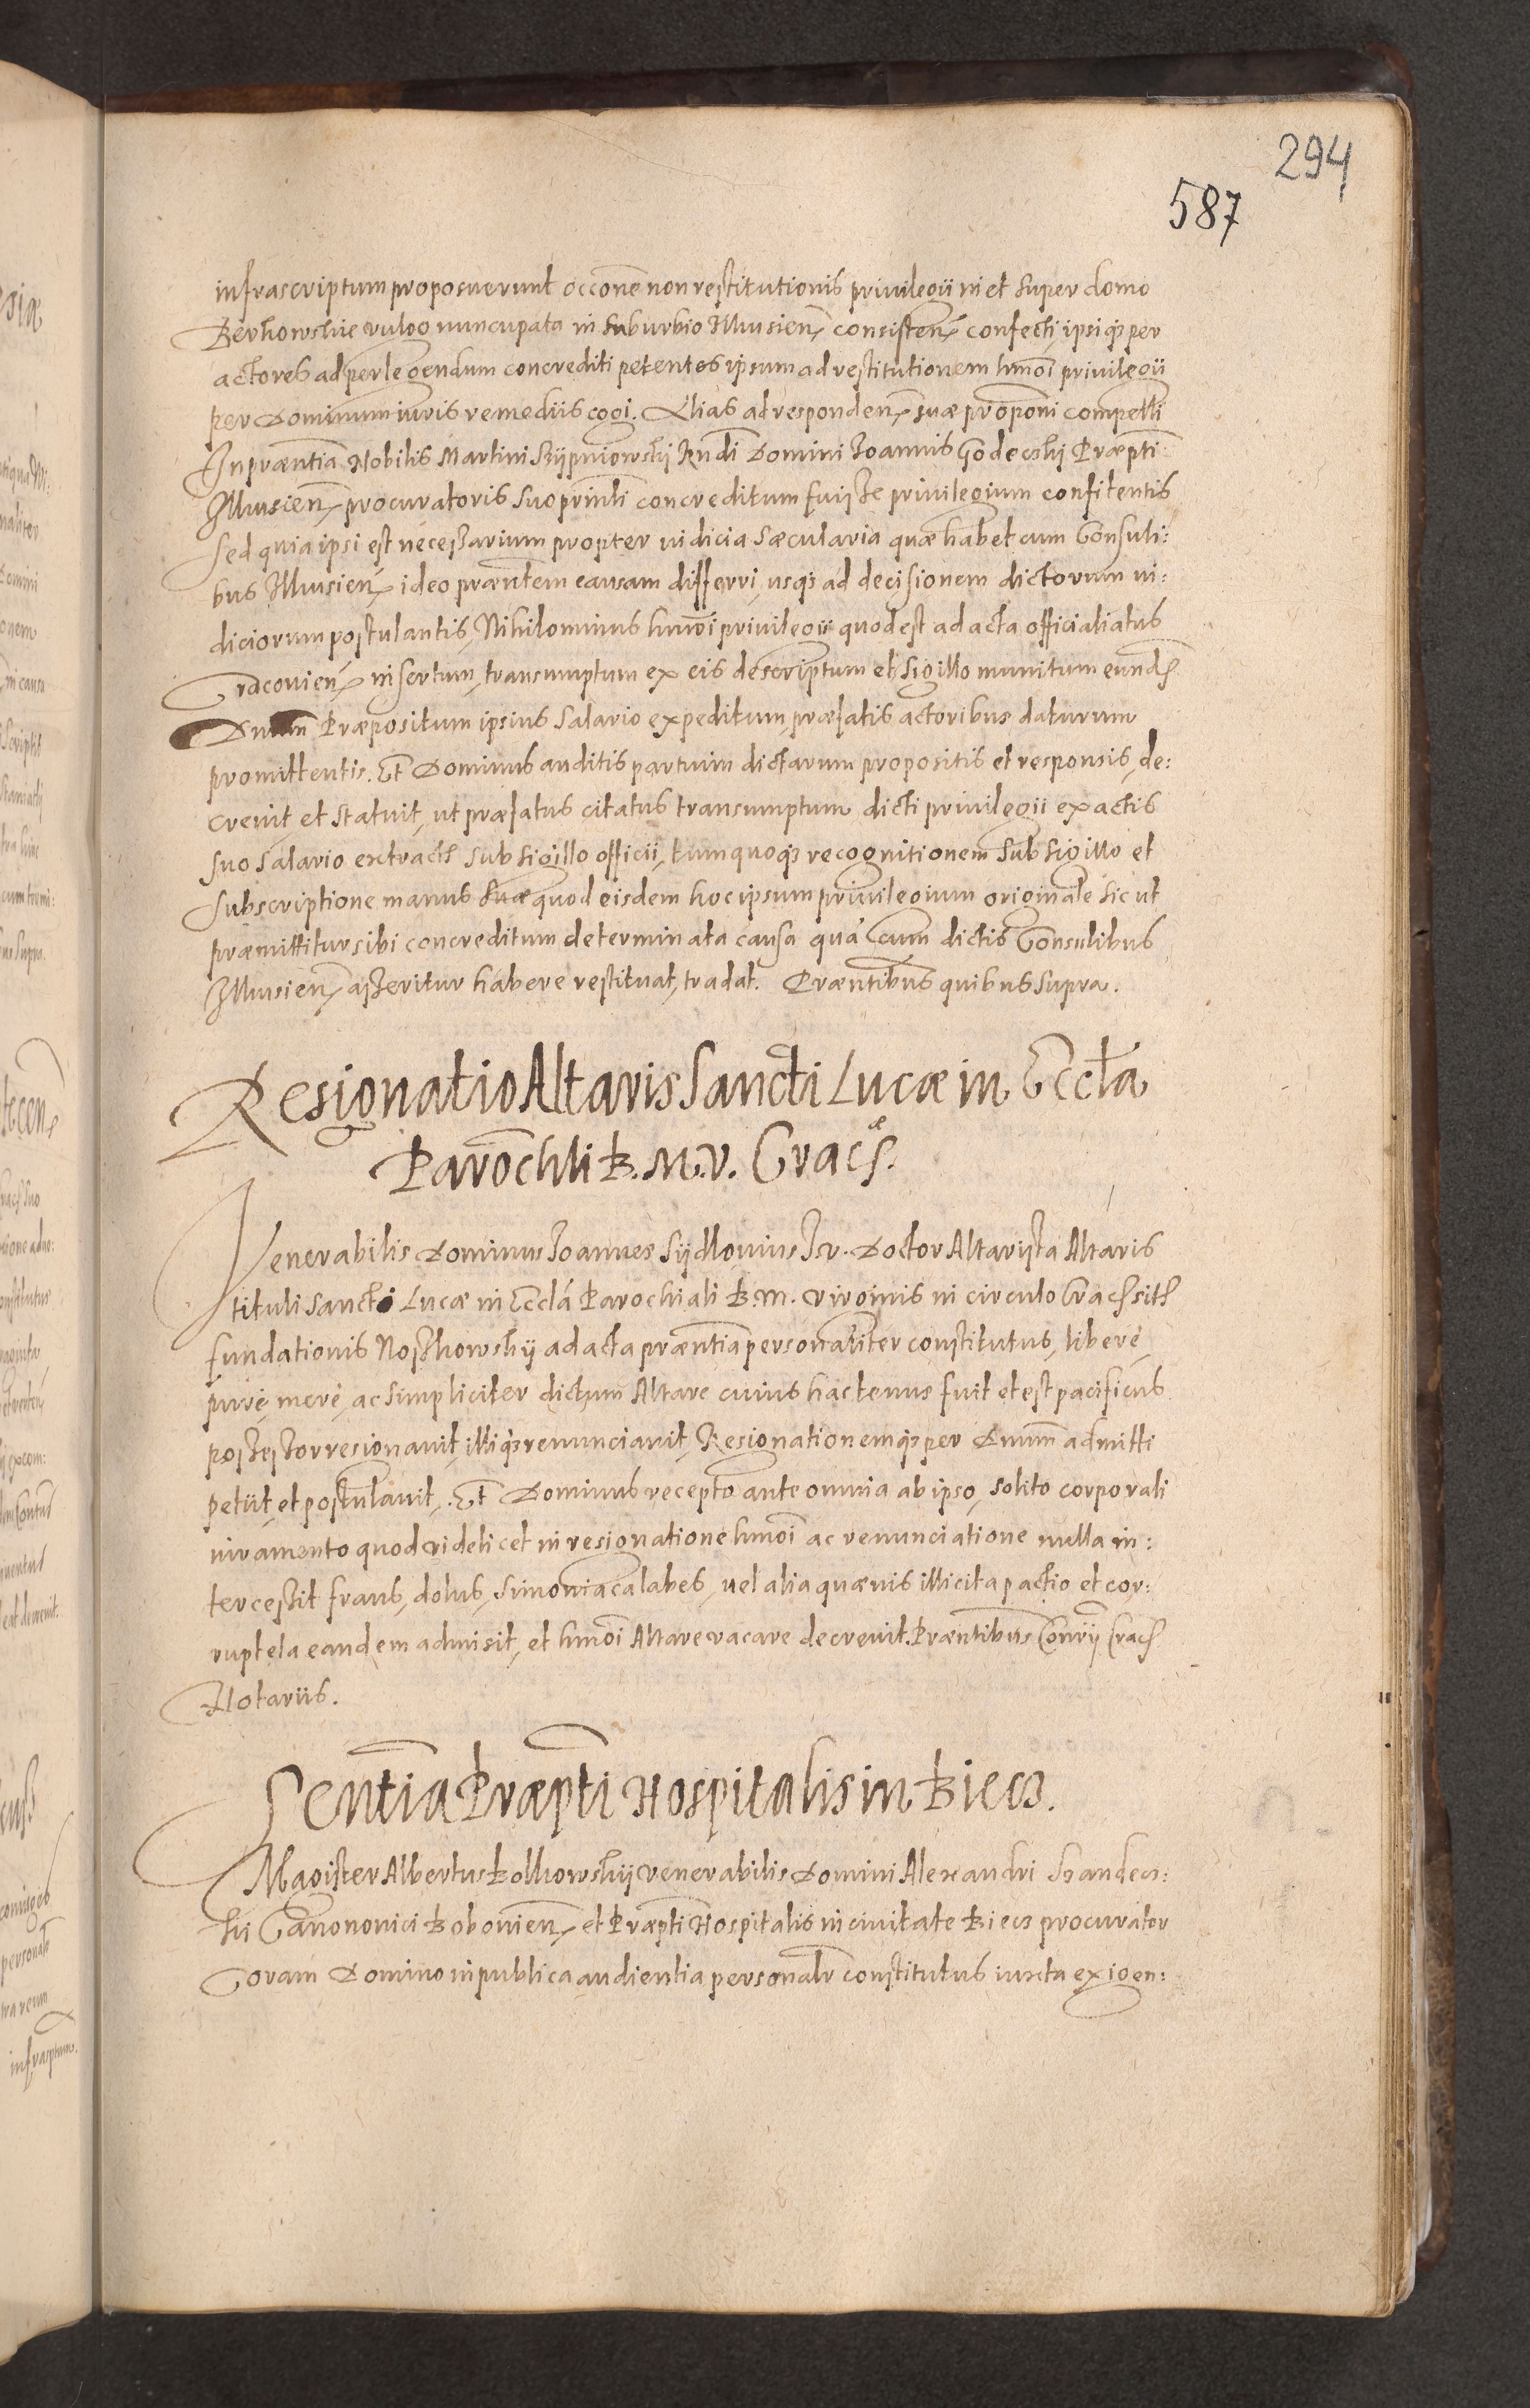 294
587
infrascriptum proposuerunt occone non restitutionis priuilegii in et super domo
Berkowskie vulgo nuncupata in suburbio Illkusien consisten confecti ipsiq per
actores ad perlegendum concrediti petentes ipsum ad restitutionem hmoi priuilegii
per Dominum iuris remediis cogi. Alias ad responden suae proponi compelli
In praentia Nobilis Martini Rndi Domini Joannis Godecskij Praepti
Illkusien procuratoris suo prinli concreditum fuisse priuilegium confitentis
sed quia ipsi est necessarium propter iudicia saecularia quae habet cum Consuli:
bus Illkusien ideo praentem causam differri, usq ad decisionem dictorum iu:
diciorum postulantis, Nihilominus hmoi priuilegii quod est ad acta officialiatus
Cracouien insertum, transumptum ex eis descriptum et sigillo munitum eund
Dnum Praepositum ipsius salario expeditum, praefatis actoribus daturum
promittentis. Et Dominus auditis partium dictarum propositis et responsis, de:
creuit et statuit, ut praefatus citatus transumptum dicti priuilegii ex actis
suo salario extract sub sigillo officii, tum quoq recognitionem sub sigillo et
subscriptione manus suae quod eisdem hoc ipsum priuilegium originale sic ut
praemittitur sibi concreditum determinata causa quá cum dictis Consulibus
Illkusien asseritur habere restituat, tradat. Praentibus quibus supra.
Resignatio Altaris Sancti Lucae in Eccla
Parochli B. M. V. Crac.
Venerabilis Dominus Joannes Sijdlouius J. V. Doctor Altarista Altaris
tituli Sancti Lucae in Ecclá Parochiali B. M. Virginis in circulo Crac sit
fundationis Noskowskij ad acta praentia personaliter constitutus, liberé,
puré, meré, ac simpliciter dictum Altare cuius hactenus fuit et est pacificus
possessor resignauit, illiq renunciauit, Resignationemq per Dnum admitti
petiit, et postulauit, Et Dominus recepto ante omnia ab ipso, solito corporali
iuramento quod videlicet in resignatione hmoi ac renunciatione nulla in:
tercessit fraus, dolus, simoniaca labes, vel alia quaeuis illicita pactio et cor:
ruptela eandem admisit, et hmoi Altare vacare decreuit. Praentibus Conrij Crac
Notariis.
Sentia Praepti Hospitalis in Biecz.
Magister Albertus Bolkowskij venerabilis Domini Alexandri
ki Canononici Bobouien et Praepti Hospitalis in ciuitate Biecz procurator
Coram Domino in publica audientia personalr constitutus iuxta exigen: